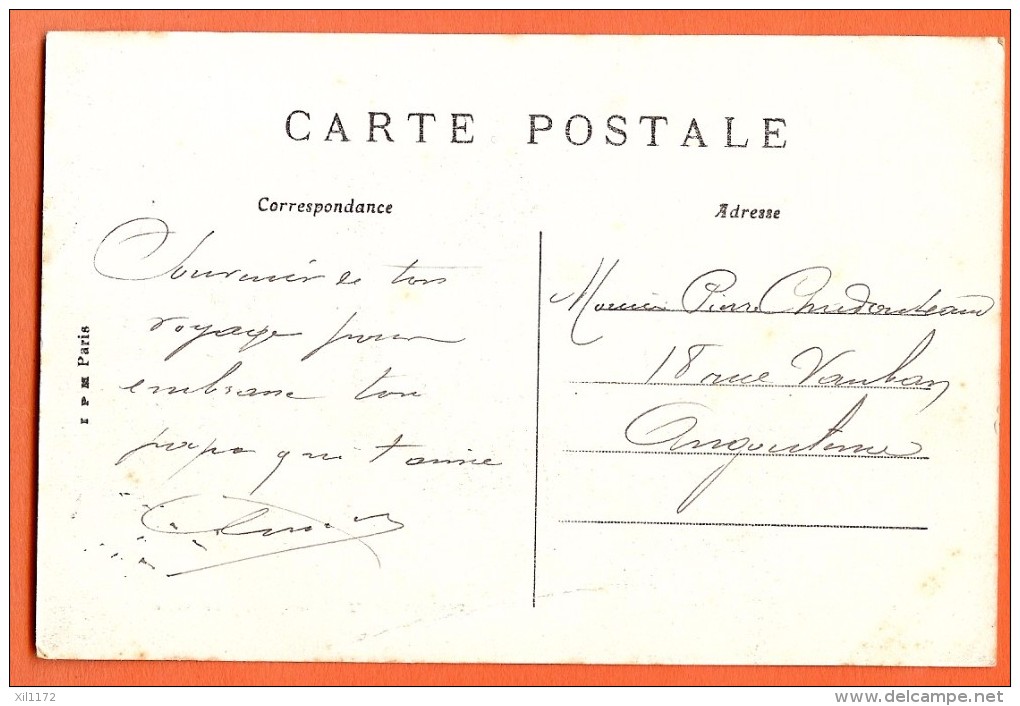 CARTE POSTALE
Correspondance
Adresse
Souvenir de ton
voyage pour
embrasse ton
papa qui t'aime
Monsieur Pierre Chudouteaud
18 rue Vauban
Angouleme
I P M Paris
xil1172
www.delcampe.net